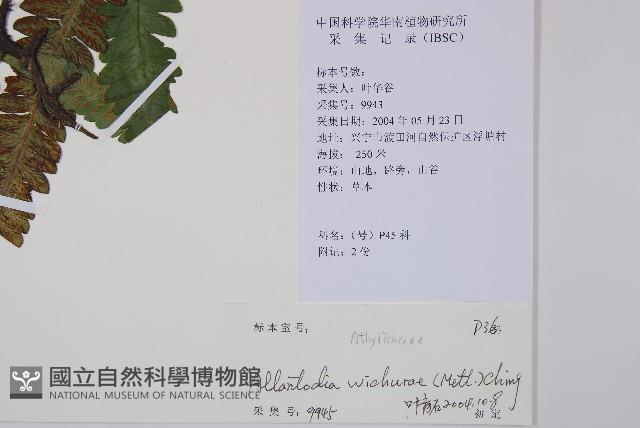 中国科学院华南植物研究所
采 集 记 录（IBSC）
标本号数：
采集人：叶华谷
采集号：9943
采集日期：2004 年 05 月 23 日
地址：兴宁市渡田河自然保护区浮塘村
海拔： 250 米
环境：山地，路旁，山谷
性状：草本
科名：（号）P45 科
附记：2 份
标本室号：
Athyriaceae
P36
Allantodia wichurae (Mett.) Ching
國立自然科學博物館
NATIONAL MUSEUM OF NATURAL SCIENCE
叶华谷 2004.10.8
采 集 号：9945
初 定